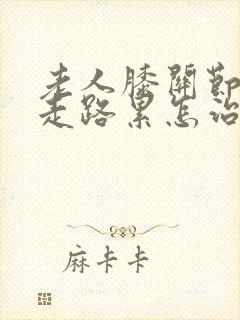 老人膝关节
走路累怎治
麻卡卡